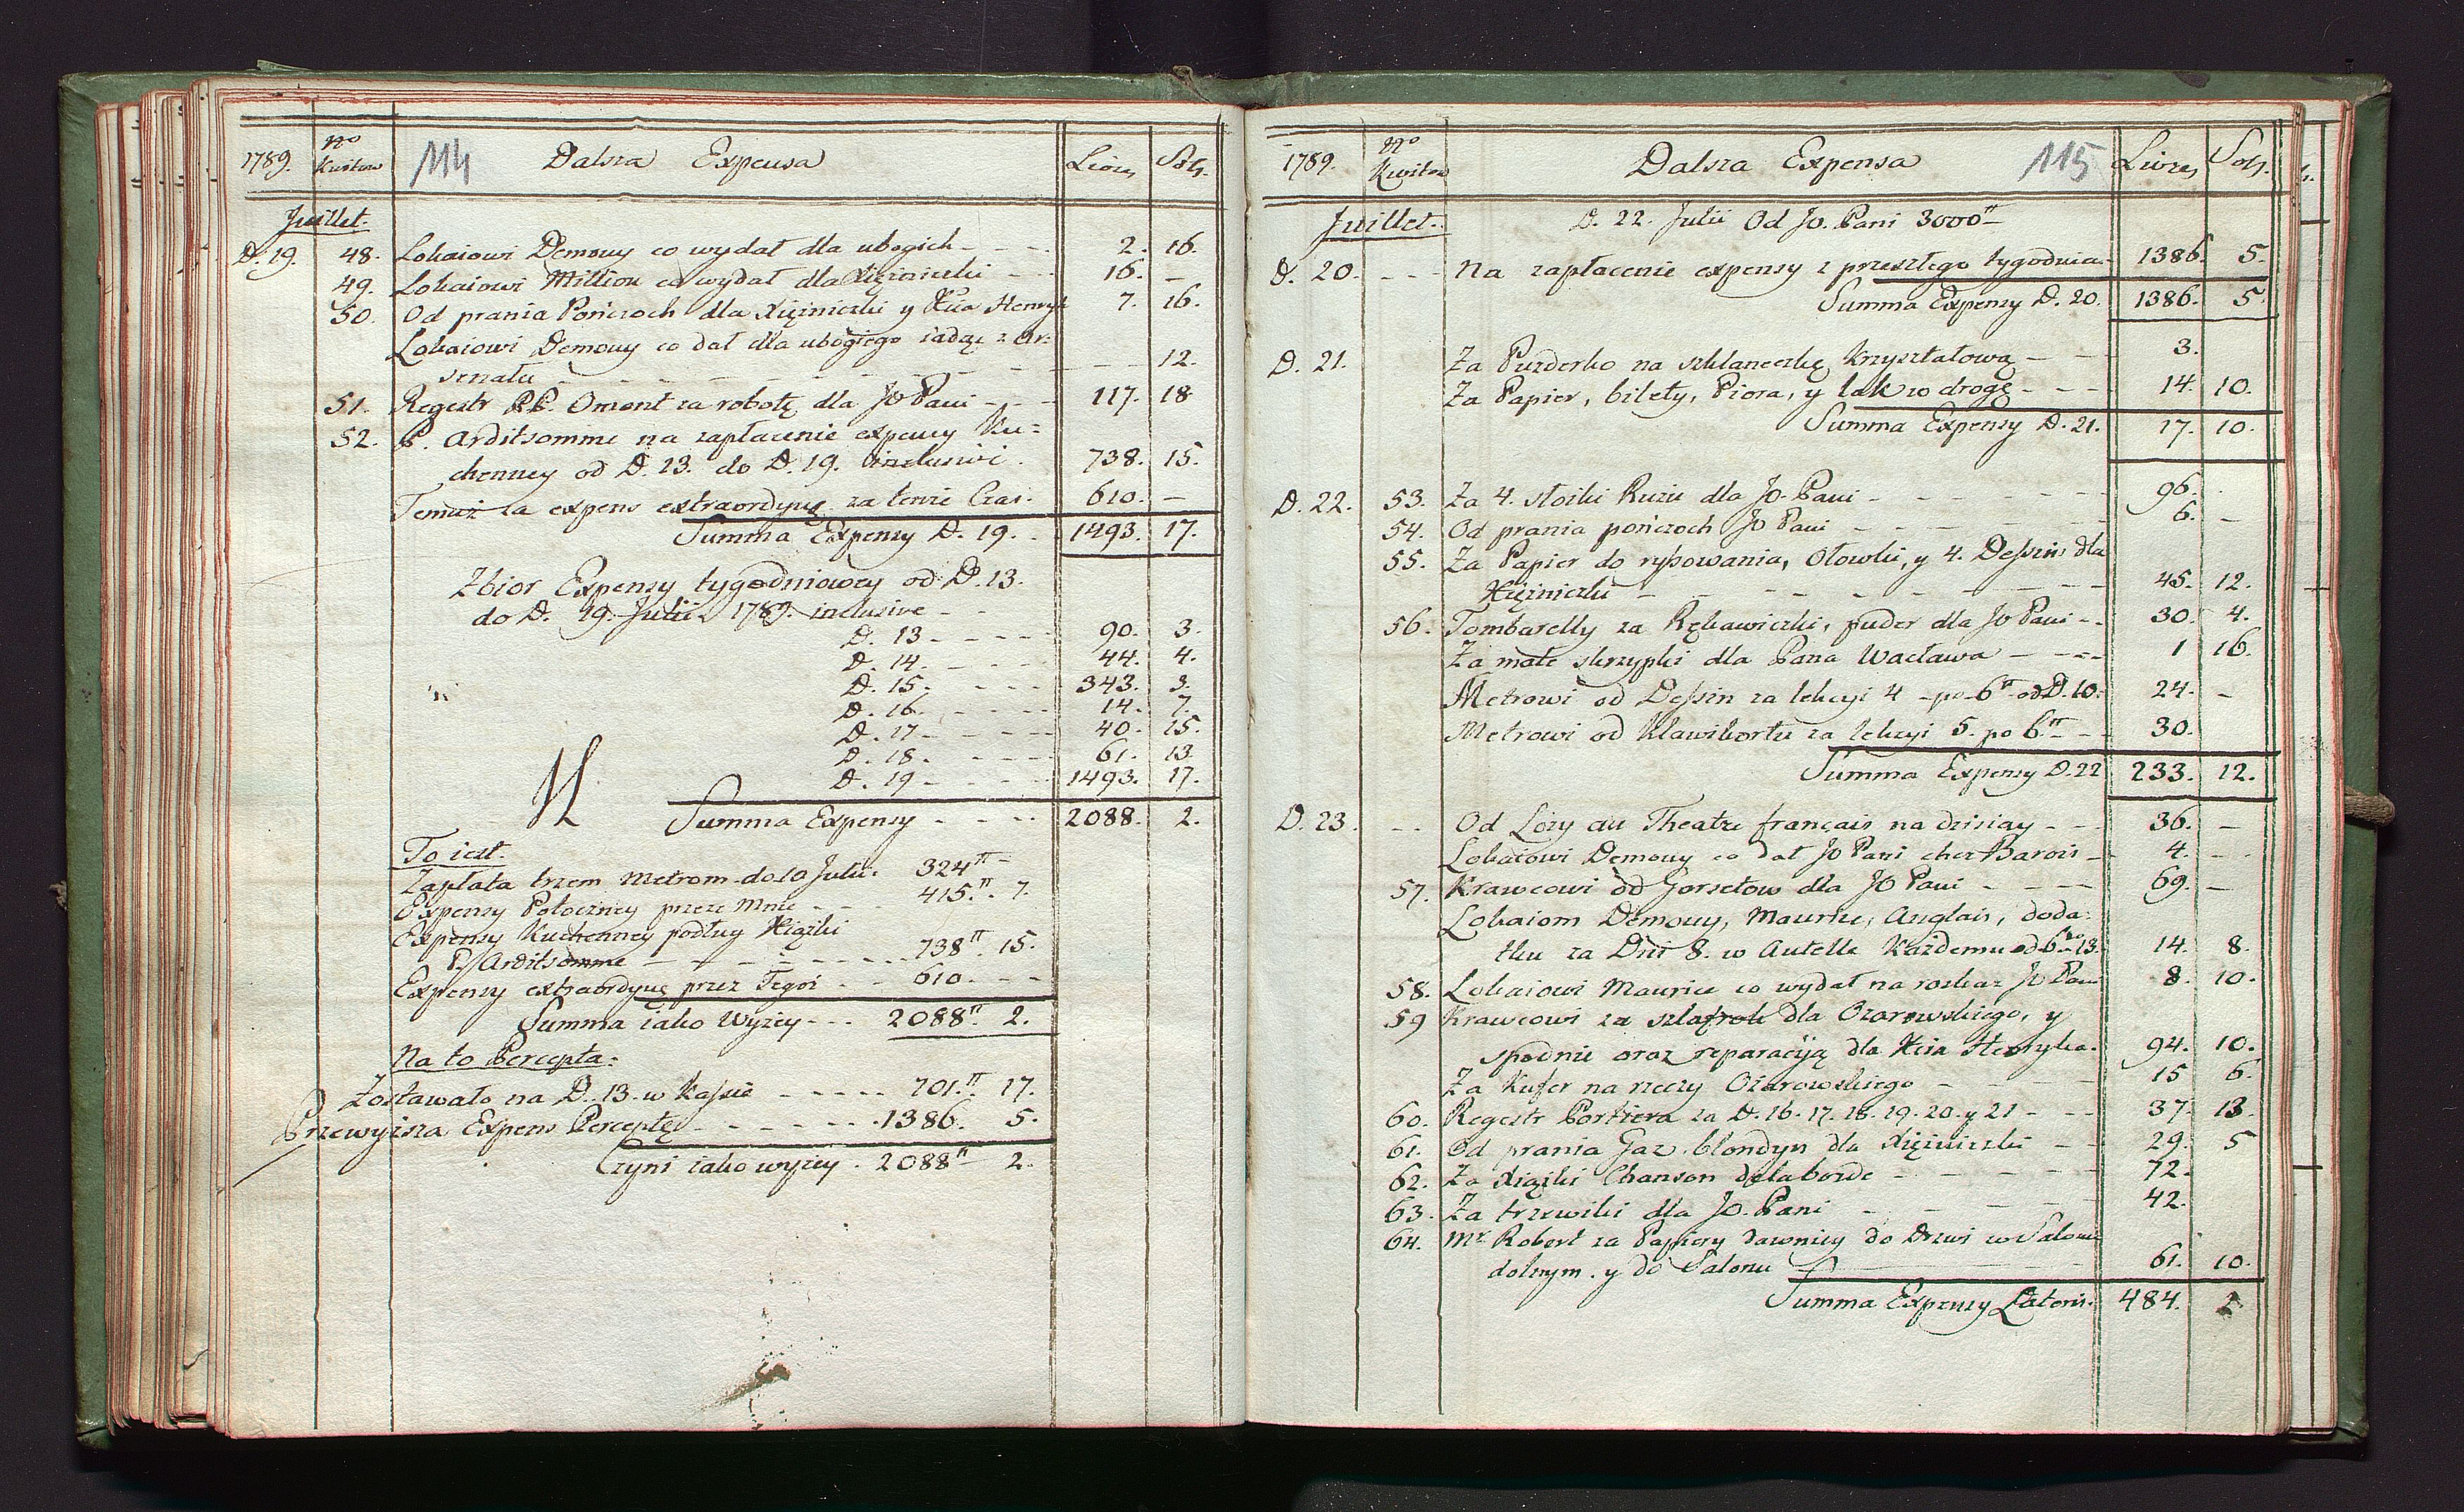 1789. No Kwitow 114 Dalsza Expensa Livres Sols.
Juillet.
D. 19. 48. Lokaiowi Demouy co wydał dla ubogich - - - 2. 16.
49. Lokaiowi Million co wydał dla Xiężniczki - - 16. -
50. Od prania Pończoch dla Xiężniczki y Xcia Henryk 7. 16.
Lokaiowi Demouy co dał dla ubogiego iadąc z Ar:
senału - - - - - - - - 12.
51. Regestr PP. Omont za robotę dla JO Pani - - - 117. 18
52. P. Arditsomme na zapłacenie expensy Ku=
chenney od D. 13. do D. 19. inclusivè. 738. 15.
Temuż za expens extraordynę za tenże Czas. 610. -
Summa Expensy D. 19. . 1493. 17.
Zbior Expensy tygodniowey od D. 13.
do D. 19. Julii 1789. inclusive - -
D. 13 - - - - 90. 3.
D. 14. - - - 44. 4.
D. 15. - - - 343. 3.
D. 16. - - - 14. 7.
D. 17 - - - - 40. 15.
D. 18. - - - - 61. 13.
D. 19 - - - - 1493. 17.
Summa Expensy - - - - 2088. 2.
To iest.
Zapłata trzem Metrom do 10 Julii. 324 tt -
Expensy Potoczney przeze Mnie - - - 415. tt 7.
Expensy Kuchenney podług Xiążki
P. Arditsomme - - - - - - 738 tt 15.
Expensy extraordynę przez Tegoż - - 610. - -
Summa iako Wyżey - - - 2088 tt. 2.
Na to Percepta:
Zostawało na D. 13. w Kassie - - - - - 701. tt 17.
Przewyższa Expens Perceptę - - - - - - 1386. 5.
Czyni iako wyżey . 2088 tt 2.
1789. No Kwitow Dalsza Expensa 115 Livres Sols.
Juillet. D. 22. Julii Od JO. Pani 3000 tt
D. 20. - - - Na zapłacenie expensy z przeszłego tygodnia. 1386. 5.
Summa Expensy D. 20. 1386. 5.
D. 21. Za Puzderko na szklaneczkę Krzyształową - - - 3.
Za Papier, bilety, Piora, y lak w drogę - - - 14. 10.
Summa Expensy D. 21. 17. 10.
D. 22. 53. Za 4. słoiki Ruzu dla JO. Pani - - - - - 96. .
54. Od prania pończoch JO Pani - - - - - 6. -
55. Za Papier do rysowania, Ołowki, y 4. Dessins dla
Xiężniczki - - - - - - - - 45. 12.
56. Tombarelly za Rękawiczki, puder dla JO Pani - - 30. 4.
Za małe skrzypki dla Pana Wacława - - - - 1 16.
Metrowi od Dessin za lekcyi 4 - po 6 tt od D. 10: 24. -
Metrowi od Klawikortu za lekcyi 5. po 6. tt - - 30.
Summa Expensy D. 22 233. 12.
D. 23. - - Od Loży au Theatre français na dzisiay - - - 36. -
Lokaiowi Demouy co dał JO Pani chez Barois - 4. - -
57. Krawcowi od Gorsetow dla JO Pani - - - - 69. -
Lokaiom Demouy, Maurice, Anglais, doda:
tku za Dni 8. w Autelle Każdemu od 6 do 13. 14. 8.
58. Lokaiowi Maurice co wydał na roskaz JO Pani 8. 10.
59 Krawcowi za szlafrok dla Ożarowskiego, y
spodnie oraz reparacyją dla Xcia Henryka. 94. 10.
Za Kufer na rzeczy Ożarowskiego - - - - 15 6.
60. Regestr Portiera za D. 16. 17. 18. 19. 20. y 21 - - - 37. 13.
61. Od prania Gaz blondyn dla Xiężniczki - - 29. 5
62. Za Xiążki Chanson delaborde - - - - - 72.
63. Za trzewiki dla JO. Pani - - - - 42.
64. Mr Robert za Papiery dawniey do Drzwi w Salonie
dolnym. y do Salonu - - - - - 61. 10.
Summa Expensy Lateris. 484. 2